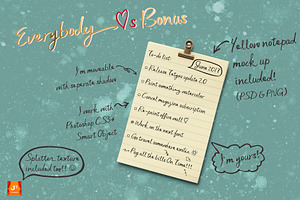 Everybody ♡s Bonus
I'm moveable
with separate shadow
I work with
Photoshop CS3+
Smart Object
Splatter texture
included too!! ☺
To-do list
June 2017
Release Fatigue update 2.0
Paint something watercolor
Cancel magazine subscription
Re-paint office wall
Work on the next font
Go travel somewhere exotic
Pay all the bills On Time!!!
Yellow notepad
mock up
included!
(PSD & PNG)
I'm yours!